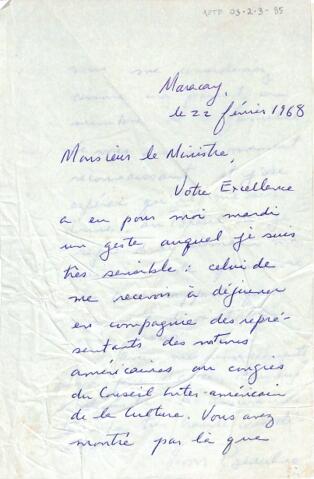 03-2-3-95
Maracay,
le 22 février 1968
Monsieur le Ministre,
Votre Excellence
a eu pour moi mardi
un geste auquel je suis
très sensible : celui de
me recevoir à déjeuner
en compagnie des repré-
sentants des nations
américaines au congrès
du Conseil Inter-américain
de la Culture. Vous avez
montré par là que